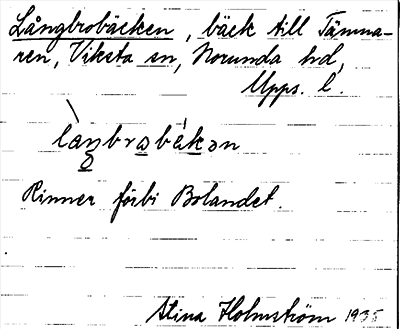 Långbrobäcken, bäck till Tämna-
ren, Viksta sn, Norunda hd,
Upps. l.
Rinner förbi Bolandet.
Stina Holmström 1935